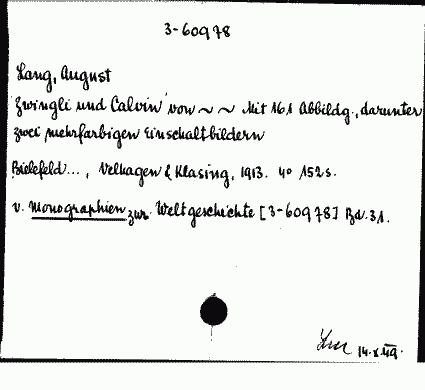 3-60978
Lang, August
Zwingli und Calvin von ~ ~ Mit 161 Abbildg., darunter
zwei mehrfarbigen Einschaltbildern
Bielefeld..., Velhagen & Klasing, 1913. 4° 152 s.
v. Monographien zur Weltgeschichte [3-60978] Bd. 31.